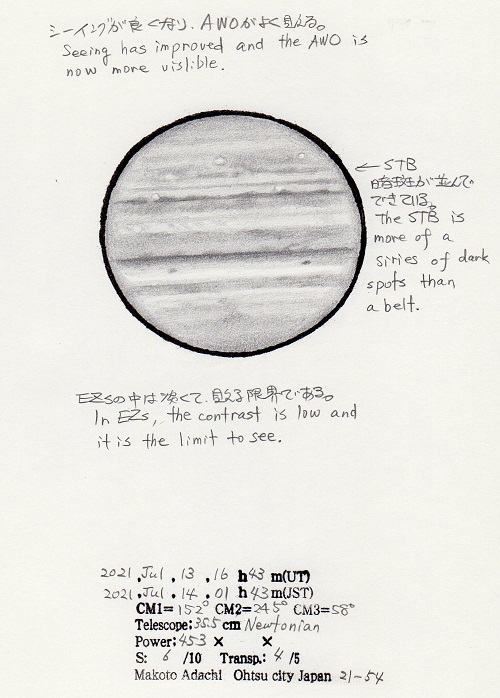 シーイングが良くなり、AWOがよく見える。
Seeing has improved and the AWO is
now more vislible.
←STB
暗斑が並んで
できている。
The STB is
more of a
siries of dark
spots than
a belt.
EZsの中は淡くて、見える限界である。
In EZs, the contrast is low and
it is the limit to see.
2021 ,Jul , 13 , 16 h43 m(UT)
2021 ,Jul . 14 . 01 h43m(JST)
CM1= 152° CM2=245° CM3=58°
Telescope:35.5cm Newtonian
Power:453 × ×
S: 6 /10 Transp.: 4 /5
Makoto Adachi Ohtsu city Japan 21-54